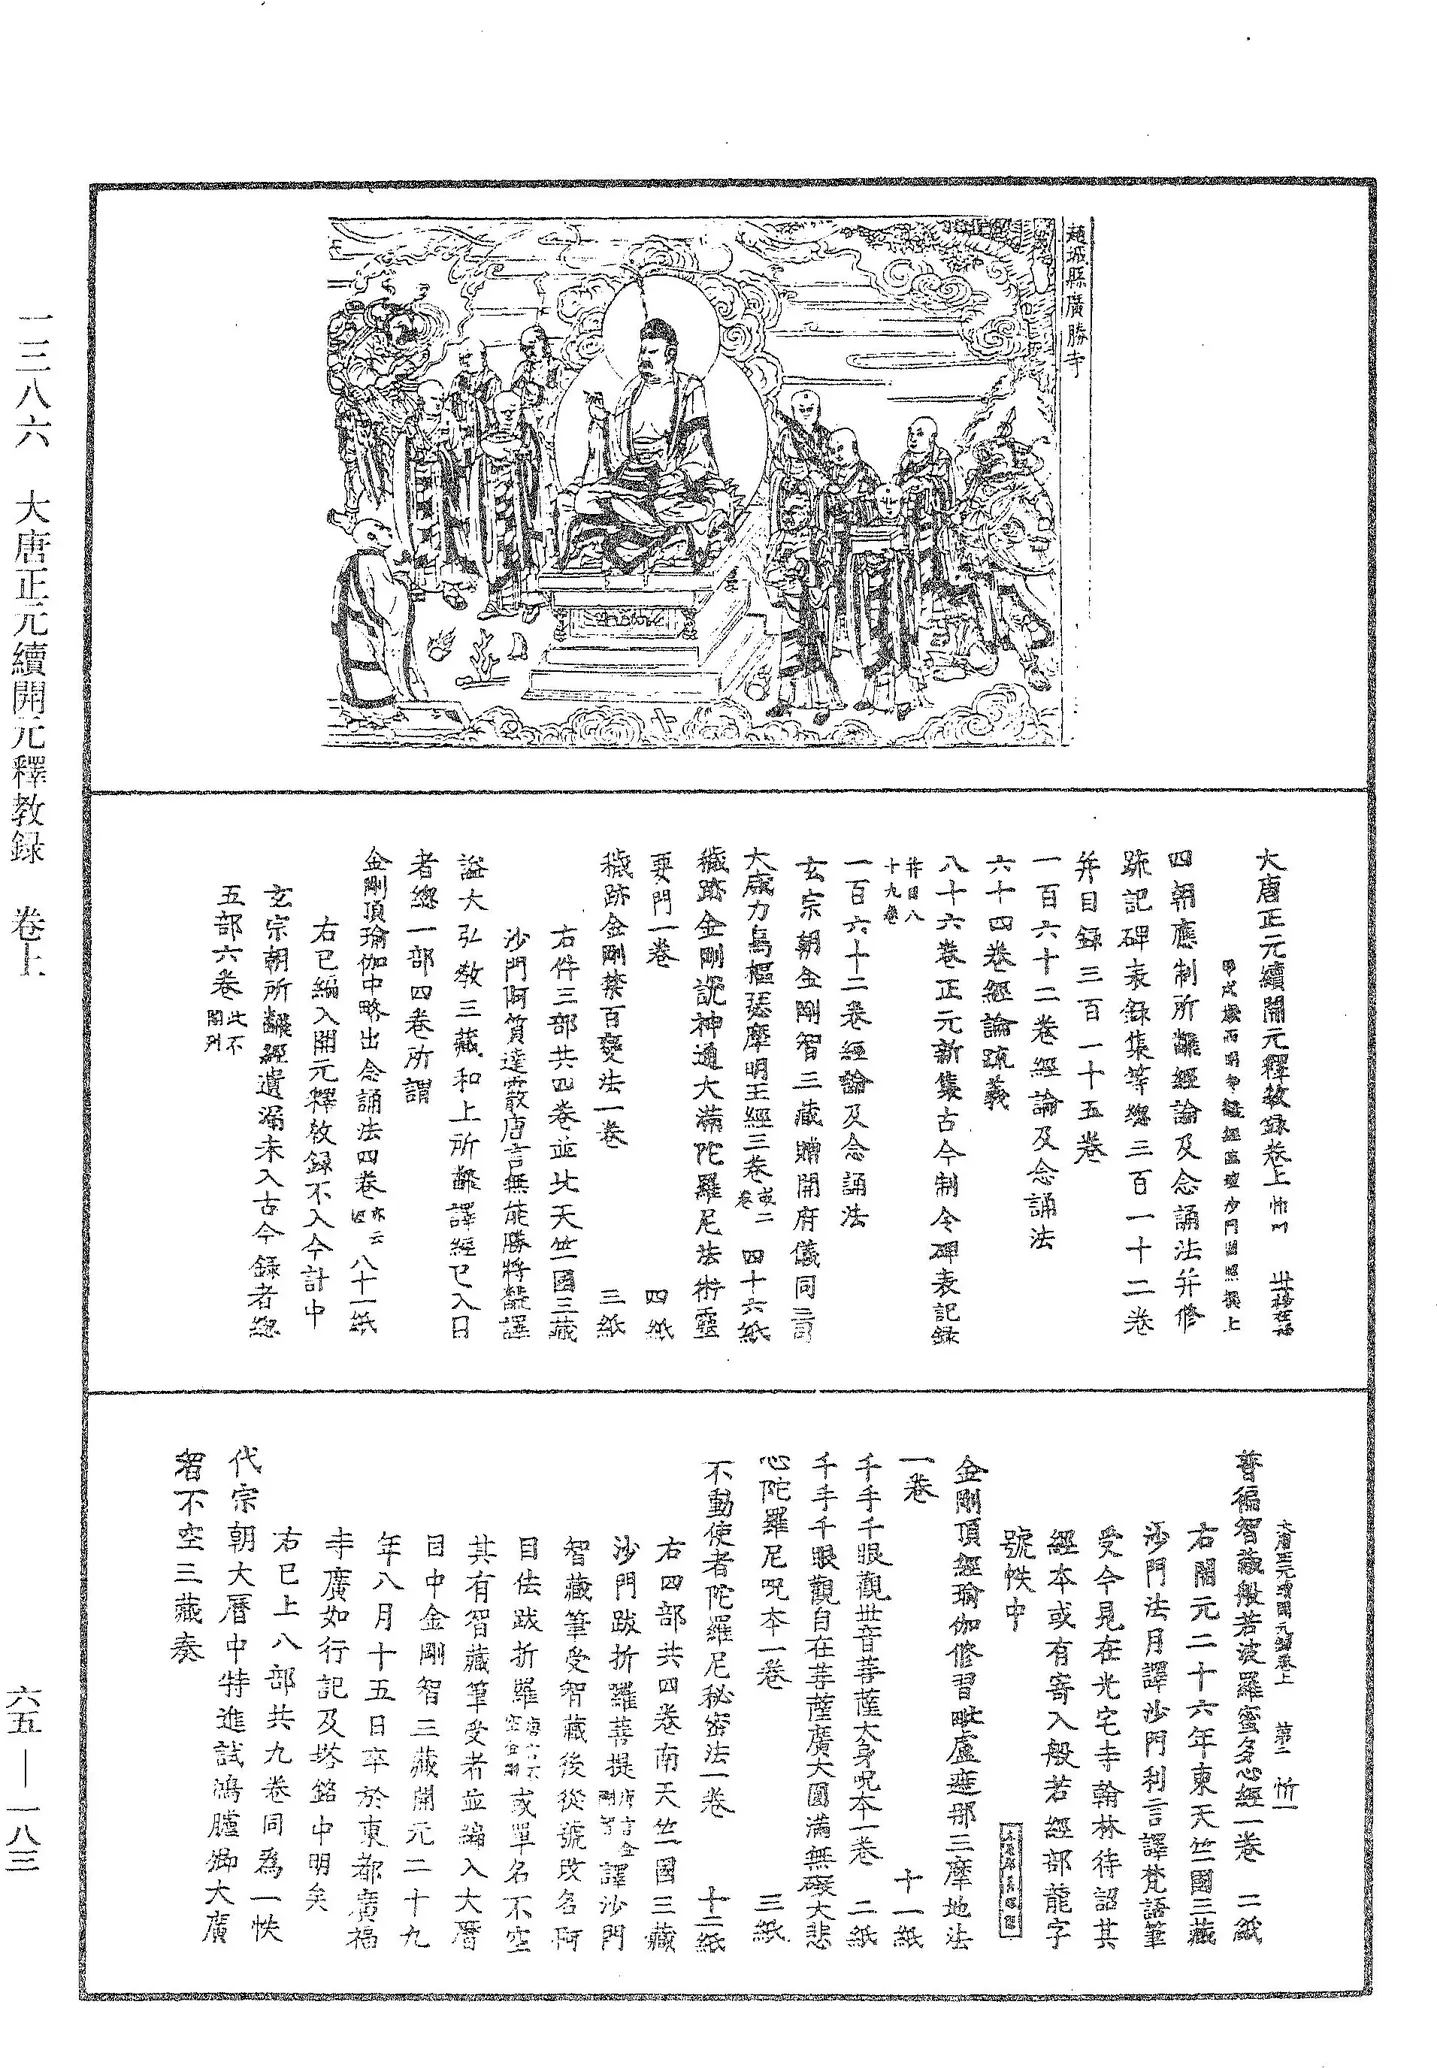 一三八六　大唐正元續開元釋教録　卷上
六五—一八三
趙城縣廣勝寺
大唐正元續開元釋教録卷上
四朝應制所翻經論及念誦法并修
䟽記碑表錄集等緫三百一十二卷
并目録三百一十五卷
一百六十二卷經論及念誦法
六十四卷經論疏義
八十六卷正元新集古今制令碑表記録
并目八
十九卷
一百六十二卷經論及念誦法
玄宗朝金剛智三藏贈開府儀同三司
大威力烏樞瑟摩明王經三卷 或二卷 四十六紙
穢跡金剛說神通大滿陀羅尼法術靈
要門一卷 四紙
穢跡金剛禁百變法一卷 三紙
右件三部共四卷並北天竺國三藏
沙門阿質達霰唐言無能勝將翻譯
謚大弘教三藏和上所翻譯經已入目
者緫一部四卷所謂
金剛頂瑜伽中略出念誦法四卷 亦云經 八十一紙
右已編入開元釋教録不入今計中
玄宗朝所翻經遺漏未入古今録者緫
五部六卷 此不開列
大唐正元續開元録卷上 第二
普徧智藏般若波羅蜜多心經一卷 二紙
右開元二十六年東天竺國三藏
沙門法月譯沙門利言譯梵語筆
受今見在光宅寺翰林待詔其
經本或有寄入般若經部龍字
號帙中
金剛頂經瑜伽修習毗盧遮那三摩地法
一卷 十一紙
千手千眼觀世音菩薩大身呪本一卷 二紙
千手千眼觀自在菩薩廣大圓滿無礙大悲
心陀羅尼呪本一卷 三紙
不動使者陀羅尼秘密法一卷 十二紙
右四部共四卷南天竺國三藏
沙門跋折羅菩提 唐言金剛智 譯沙門
智藏筆受智藏後從號改名阿
目佉跋折羅 唐言不空金剛 或單名不空
其有智藏筆受者並編入大曆
目中金剛智三藏開元二十九
年八月十五日卒於東都廣福
寺廣如行記及塔銘中明矣
右已上八部共九卷同爲一帙
代宗朝大曆中特進試鴻臚卿大廣
智不空三藏奏